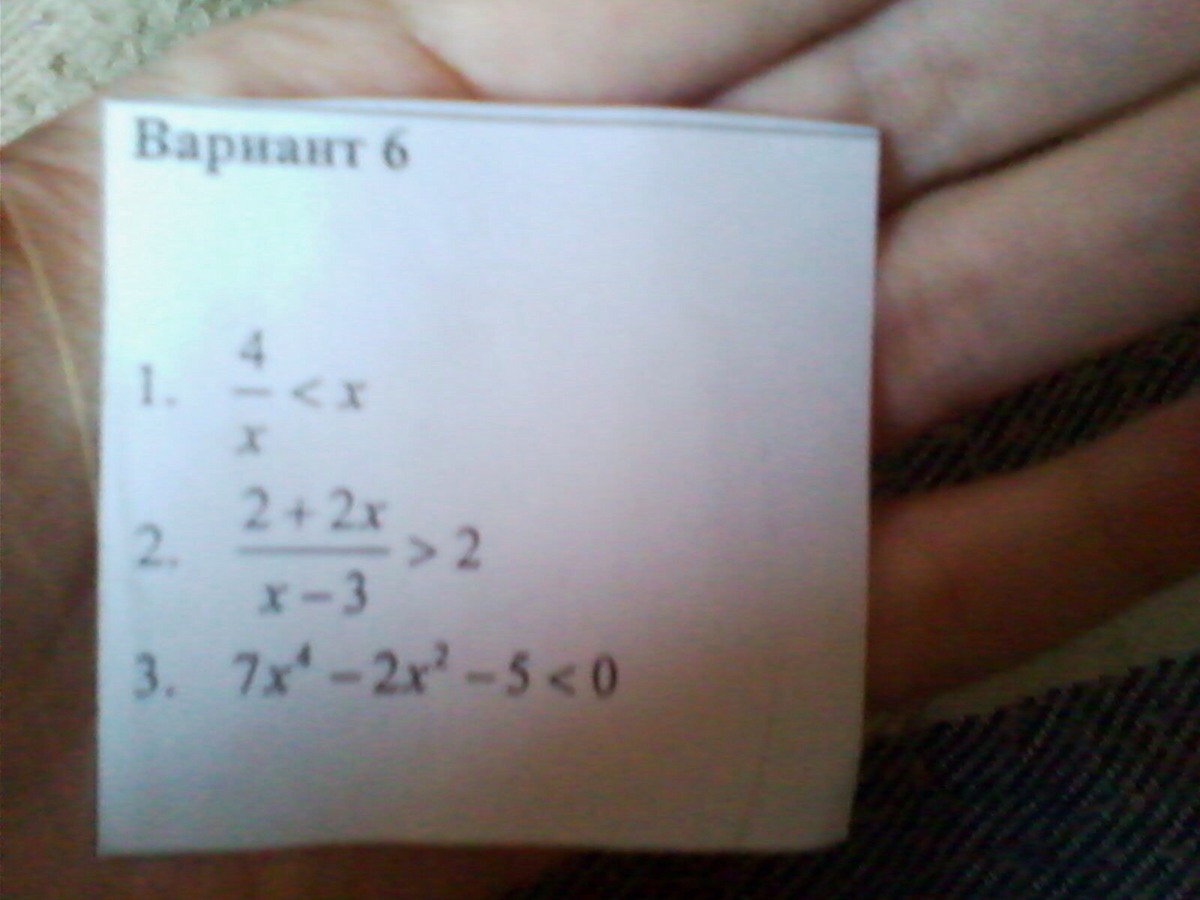 Вариант 6
1. 4/x < x
2. (2 + 2x)/(x − 3) > 2
3. 7x⁴ − 2x² − 5 < 0